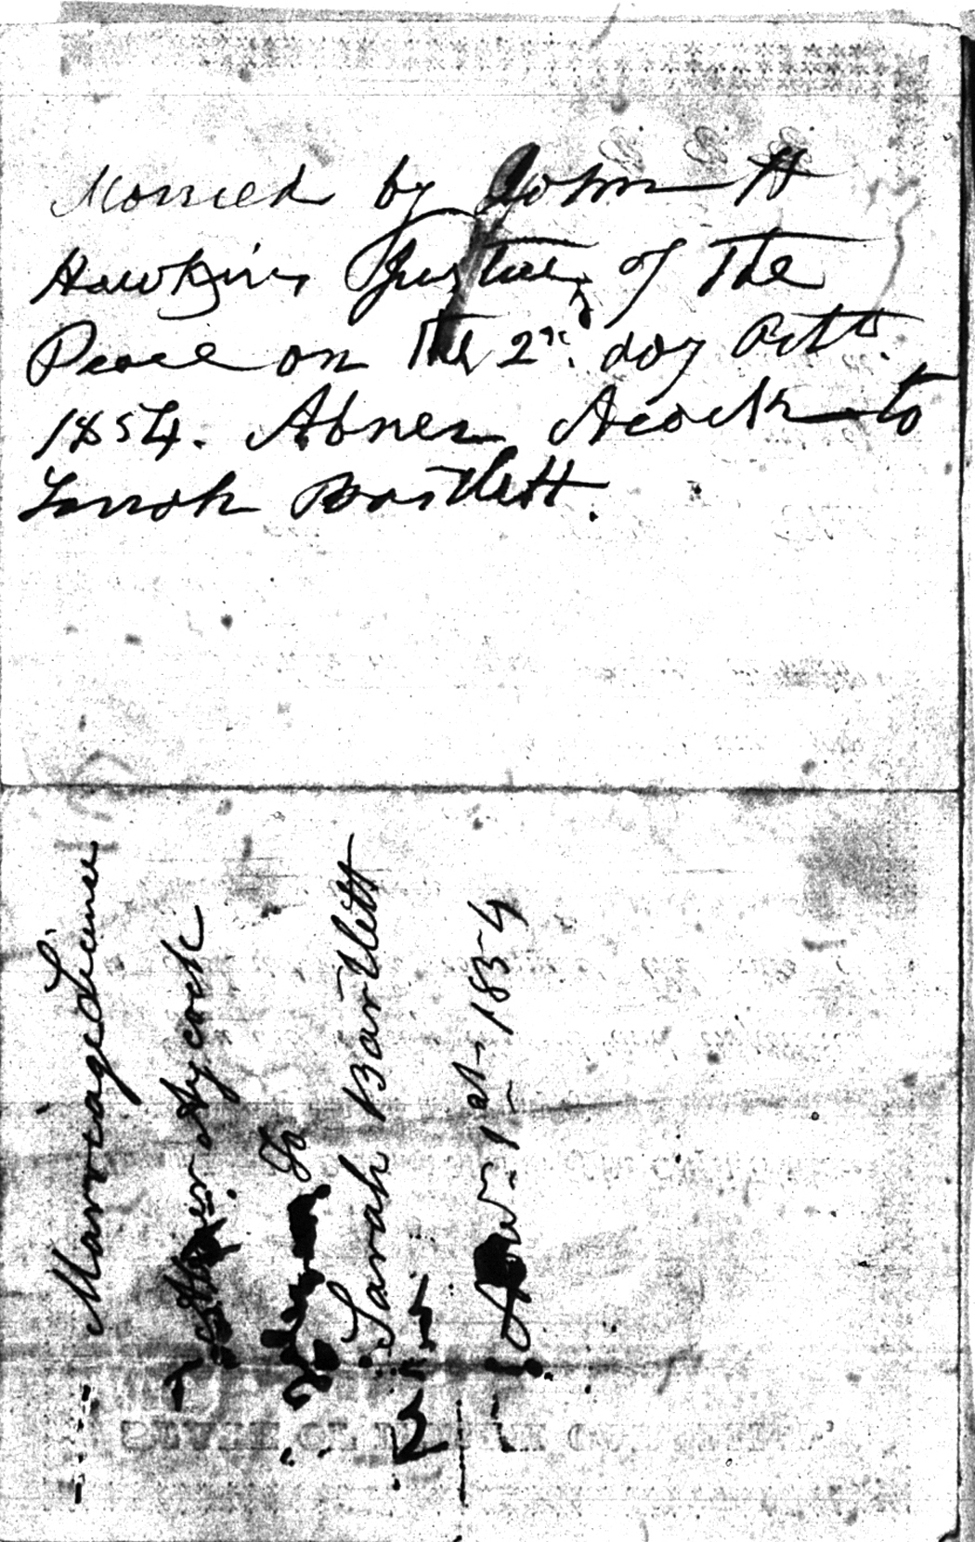 Married by John H
Hawkins Justice of The
Peace on The 2nd day Octo.
1854. Abner Acock to
Sarah Bartlett.
Marriage License
Abner Aycock
To
Sarah Bartlett
1st 1854